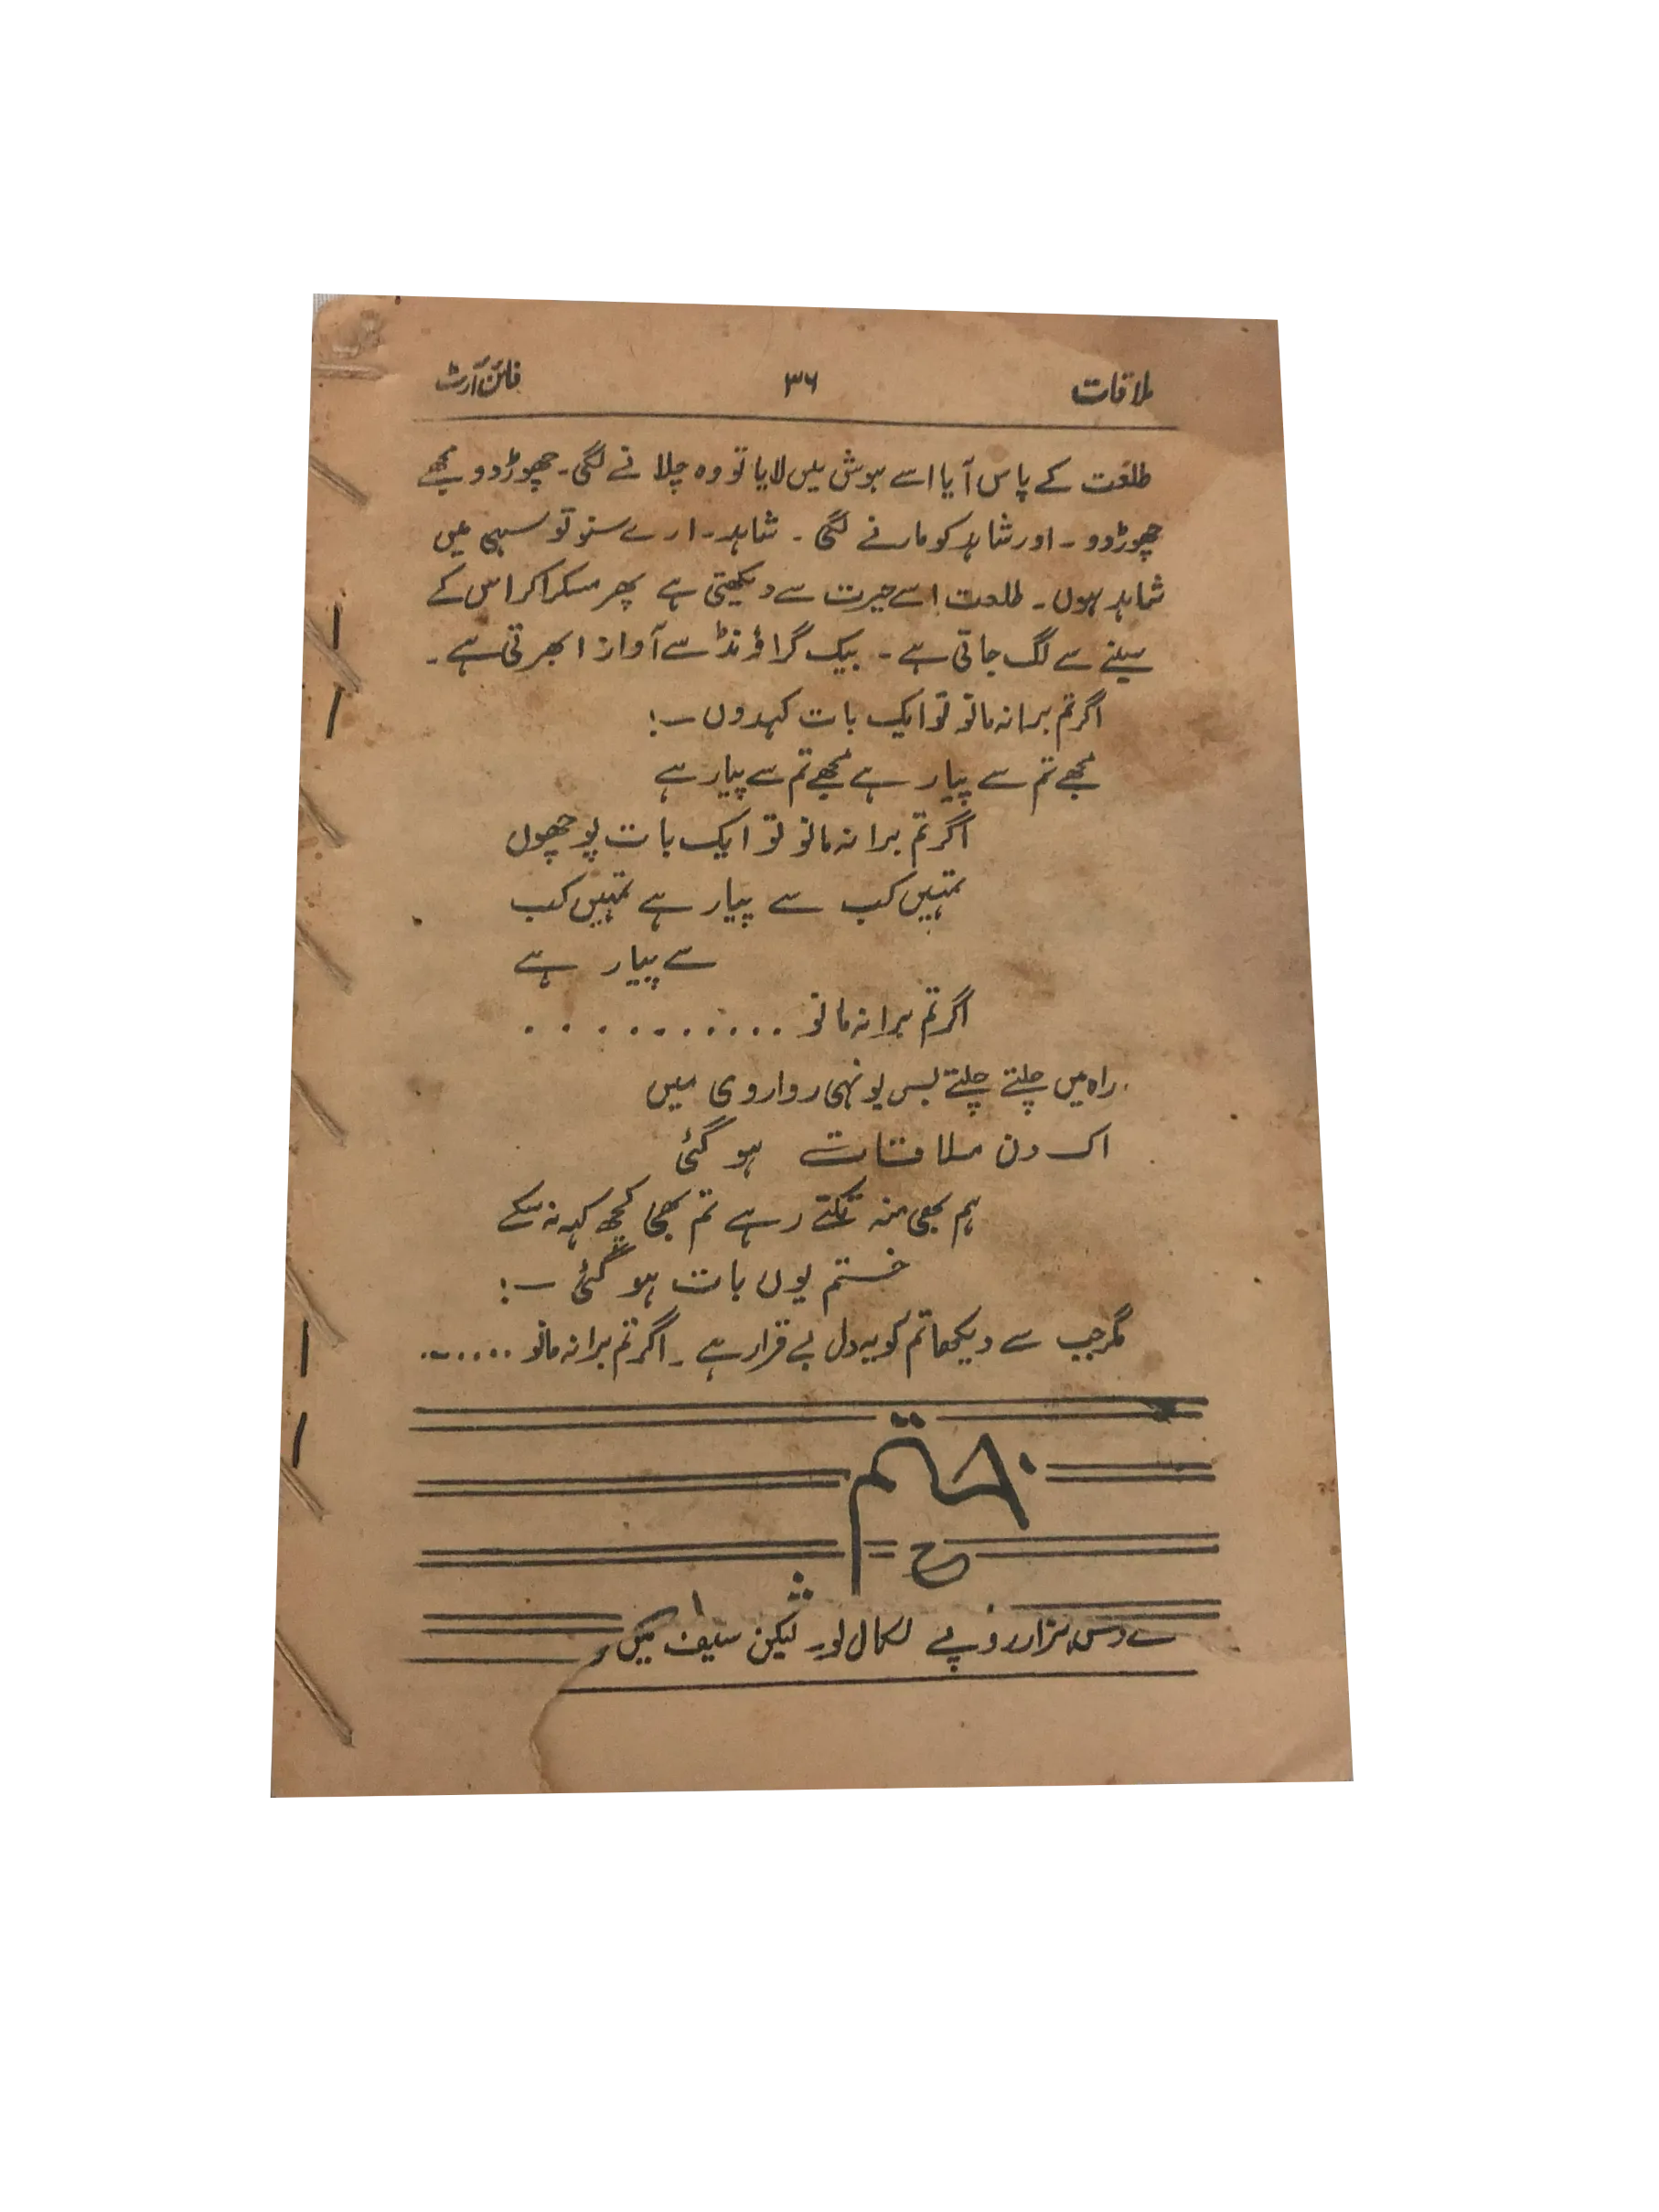 ملاقات ۳۶ فائن آرٹ
طلعت کے پاس آیا اسے ہوش میں لایا تو وہ چلانے لگی۔ چھوڑ دو مجھے
چھوڑ دو۔ اور شاہد کو مارنے لگی۔ شاہد۔ ارے سنو تو سہی میں
شاہد ہوں۔ طلعت اسے حیرت سے دیکھتی ہے پھر مسکرا کر اس کے
سینے سے لگ جاتی ہے۔ بیک گراؤنڈ سے آواز ابھرتی ہے۔
اگر تم برا نہ مانو تو ایک بات کہدوں ــ!
مجھے تم سے پیار ہے مجھے تم سے پیار ہے
اگر تم برا نہ مانو تو ایک بات پوچھوں
تمہیں کب سے پیار ہے تمہیں کب
سے پیار ہے
اگر تم برا نہ مانو ...........
راہ میں چلتے چلتے بس یونہی رواروی میں
اک دن ملاقات ہو گئی
ہم بھی منہ تکتے رہے تم بھی کچھ کہہ نہ سکے
ختم یوں بات ہو گئی ــ!
مگر جب سے دیکھا تم کو یہ دل بے قرار ہے۔ اگر تم برا نہ مانو ......
ختم
سے دس ہزار روپے نکال لو۔ لیکن سیف میں